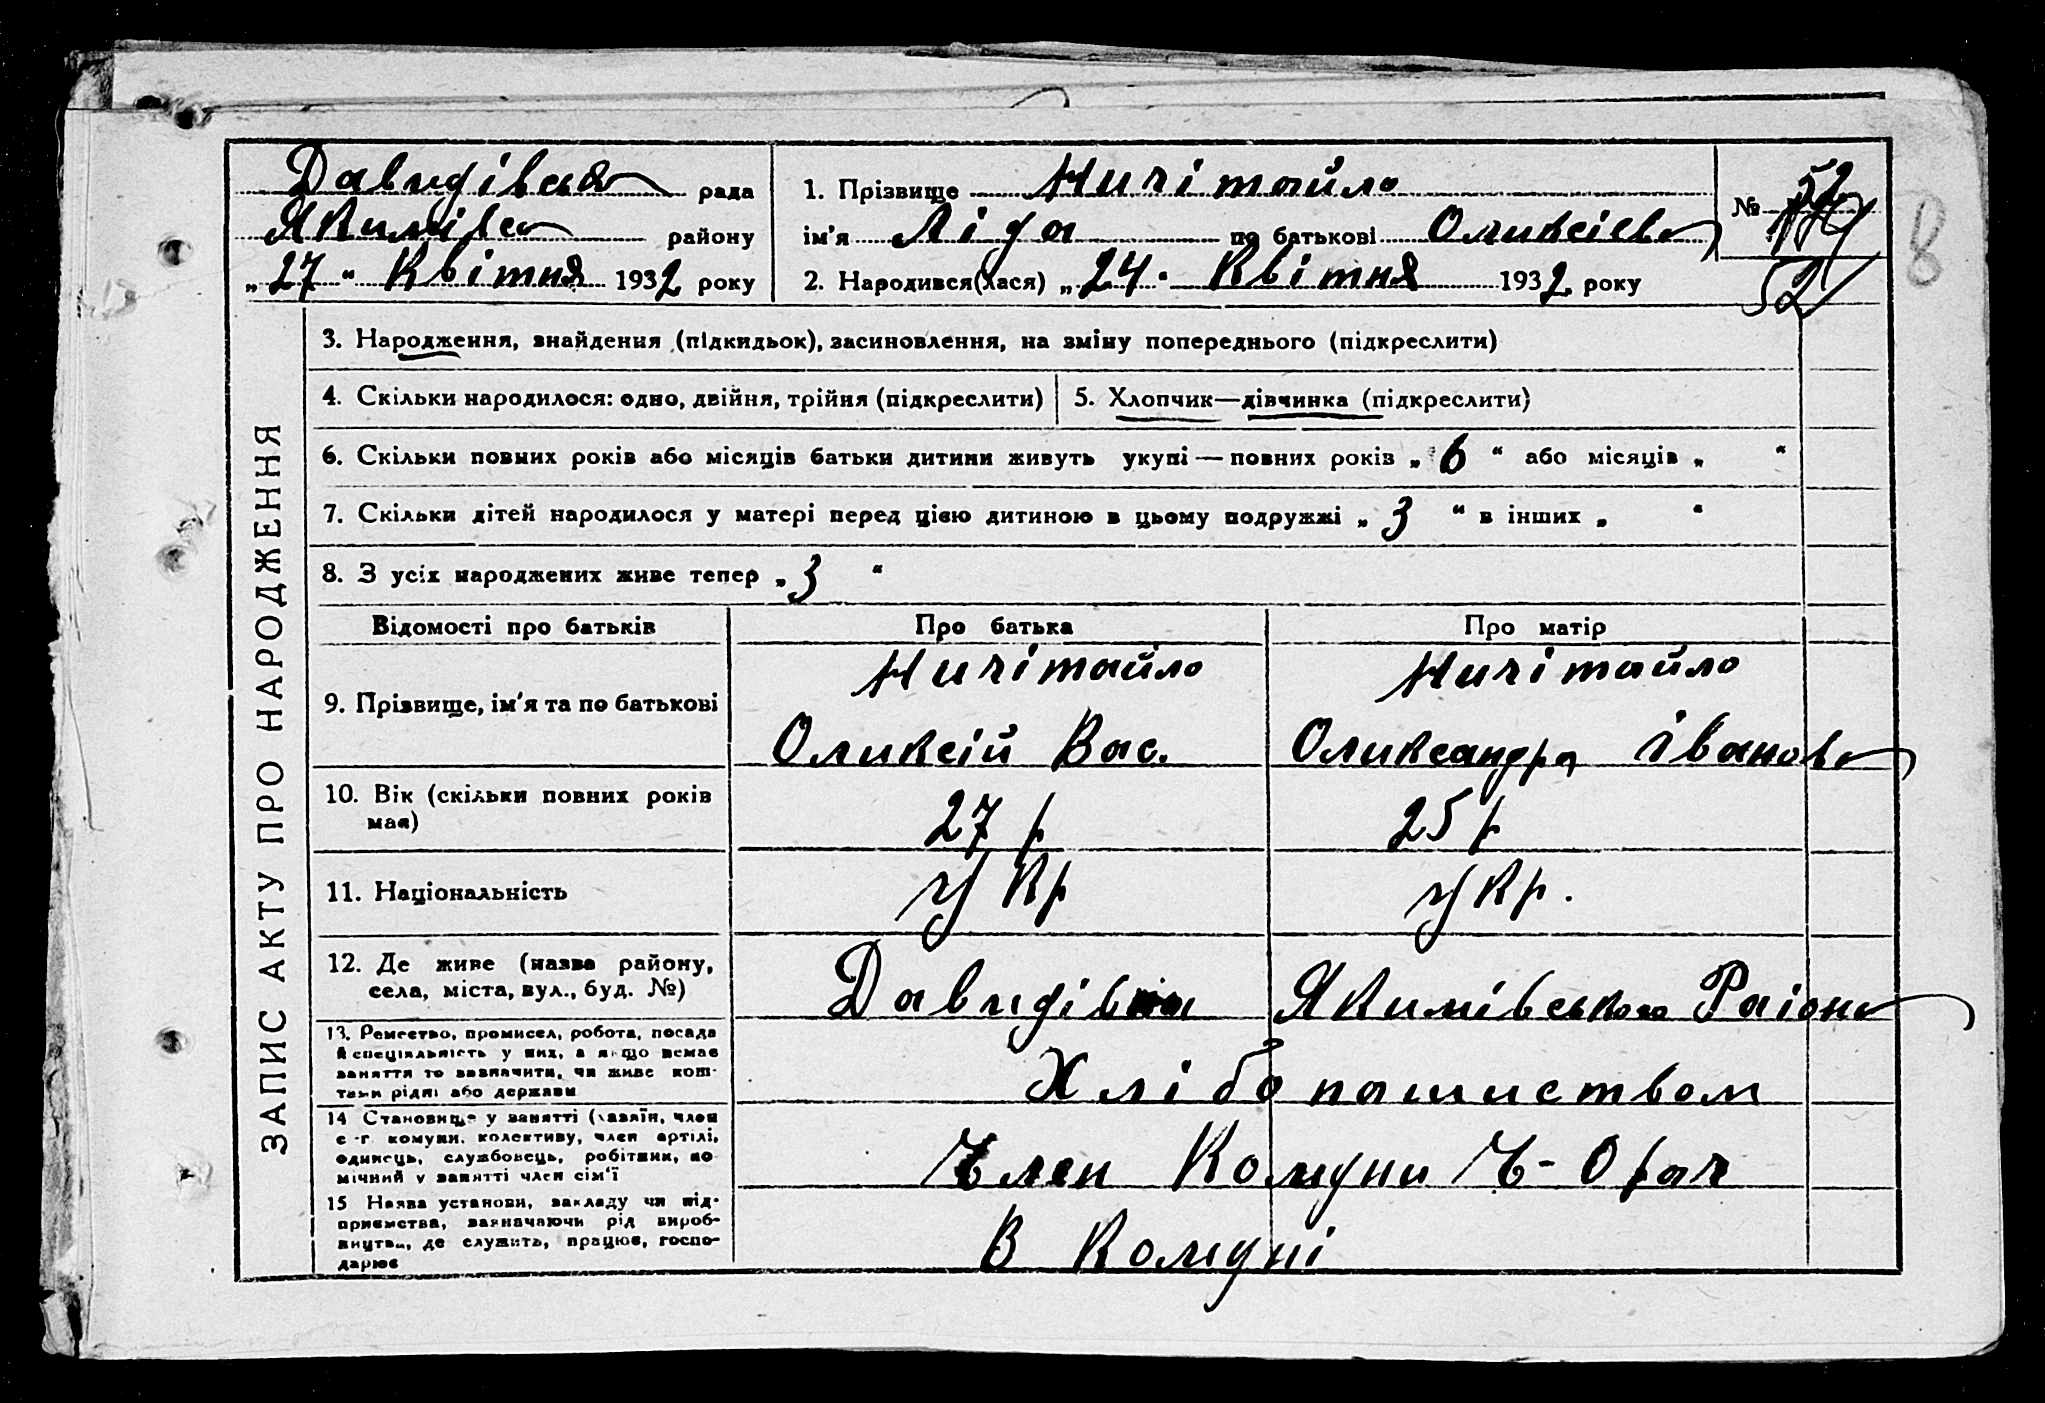 Давидівська рада
Якимівсь району
„27“ Квітня 1932 року
1. Прізвище Ничітайло
ім'я Ліда по батькові Оликсієв
2. Народився(лася) „24. Квітня 1932 року
№ 52
52
8
ЗАПИС АКТУ ПРО НАРОДЖЕННЯ
3. Народження, знайдення (підкидьок), засиновлення, на зміну попереднього (підкреслити)
4. Скільки народилося: одно, двійня, трійня (підкреслити)
5. Хлопчик—дівчинка (підкреслити)
6. Скільки повних років або місяців батьки дитини живуть укупі — повних років „ 6 “ або місяців „ “
7. Скільки дітей народилося у матері перед цією дитиною в цьому подружжі „ 3 “ в інших „ “
8. З усіх народжених живе тепер „ 3 “
Відомості про батьків Про батька Про матір
9. Прізвище, ім'я та по батькові
Ничітайло Ничітайло
Оликсій Вас. Оликсандра Іванов
10. Вік (скільки повних років
має)
27 р 25 р
11. Національність
укр укр.
12. Де живе (назва району,
села, міста, вул., буд. №)
Давидівка Якимівського Раіону
13. Ремество, промисел, робота, посада
й спеціяльність у них, а якщо немає
заняття то зазначити, чи живе кош-
тами рідні або держави
Хлібопашиством
14 Становище у занятті (хазяїн, член
с-г комуни, колективу, член артілі,
одинець, службовець, робітник, по
мічний у занятті член сім'ї
Член Комуни Ч-Орач
15 Назва установи, закладу чи під-
приємства, зазначаючи рід вироб-
ництва, де служить, працює, госпо-
дарює
В Комуні